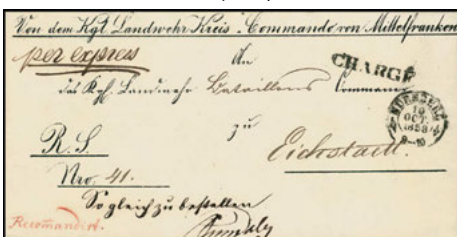 Von dem Kgl. Landwehr Kreis-Commando von Mittelfranken
per express
An
CHARGÉ
das Kgl. Landwehr Bataillons Commando
NÜRNBERG
10
OCT.
1858
8-10
zu
R. S.
Eichstaett.
Nro. 41.
So gleich zu bestellen
Recomandirt.